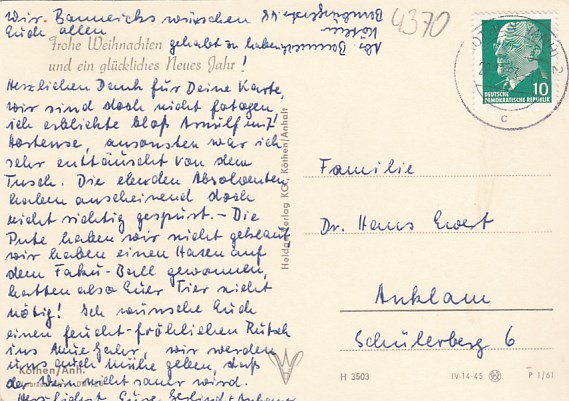 Wir. Bannericks wünschen
Euch allen
Frohe Weihnachten gehabt zu haben
und ein glückliches Neues Jahr!
Herzlichen Dank für Deine Karte,
wir sind doch nicht fotogen,
ich erblickte bloß Arnulf m. 7!
Hortense, ansonsten war ich
sehr enttäuscht von dem
Tusch. Die elenden Absolventen
haben anscheinend doch
nicht richtig gespurt. – Die
Pute haben wir nicht geklaut
wir haben einen Hasen auf
dem Faku-Ball gewonnen,
hatten also Euer Tier nicht
nötig! Ich wünsche Euch
einen feucht-fröhlichen Rutsch
ins Neue Jahr, wir werden
uns auch mühe geben, daß
der Wein nicht sauer wird.
Herzlichst Eure Gerlind +
Köthen/Anh.
4370
Köthen
10
DEUTSCHE
DEMOKRATISCHE REPUBLIK
c
Familie
Dr. Hans Ewert
Anklam
Schülerberg 6
Heldge-Verlag KG, Köthen/Anhalt
H 3503
IV-14-45
P 1/61